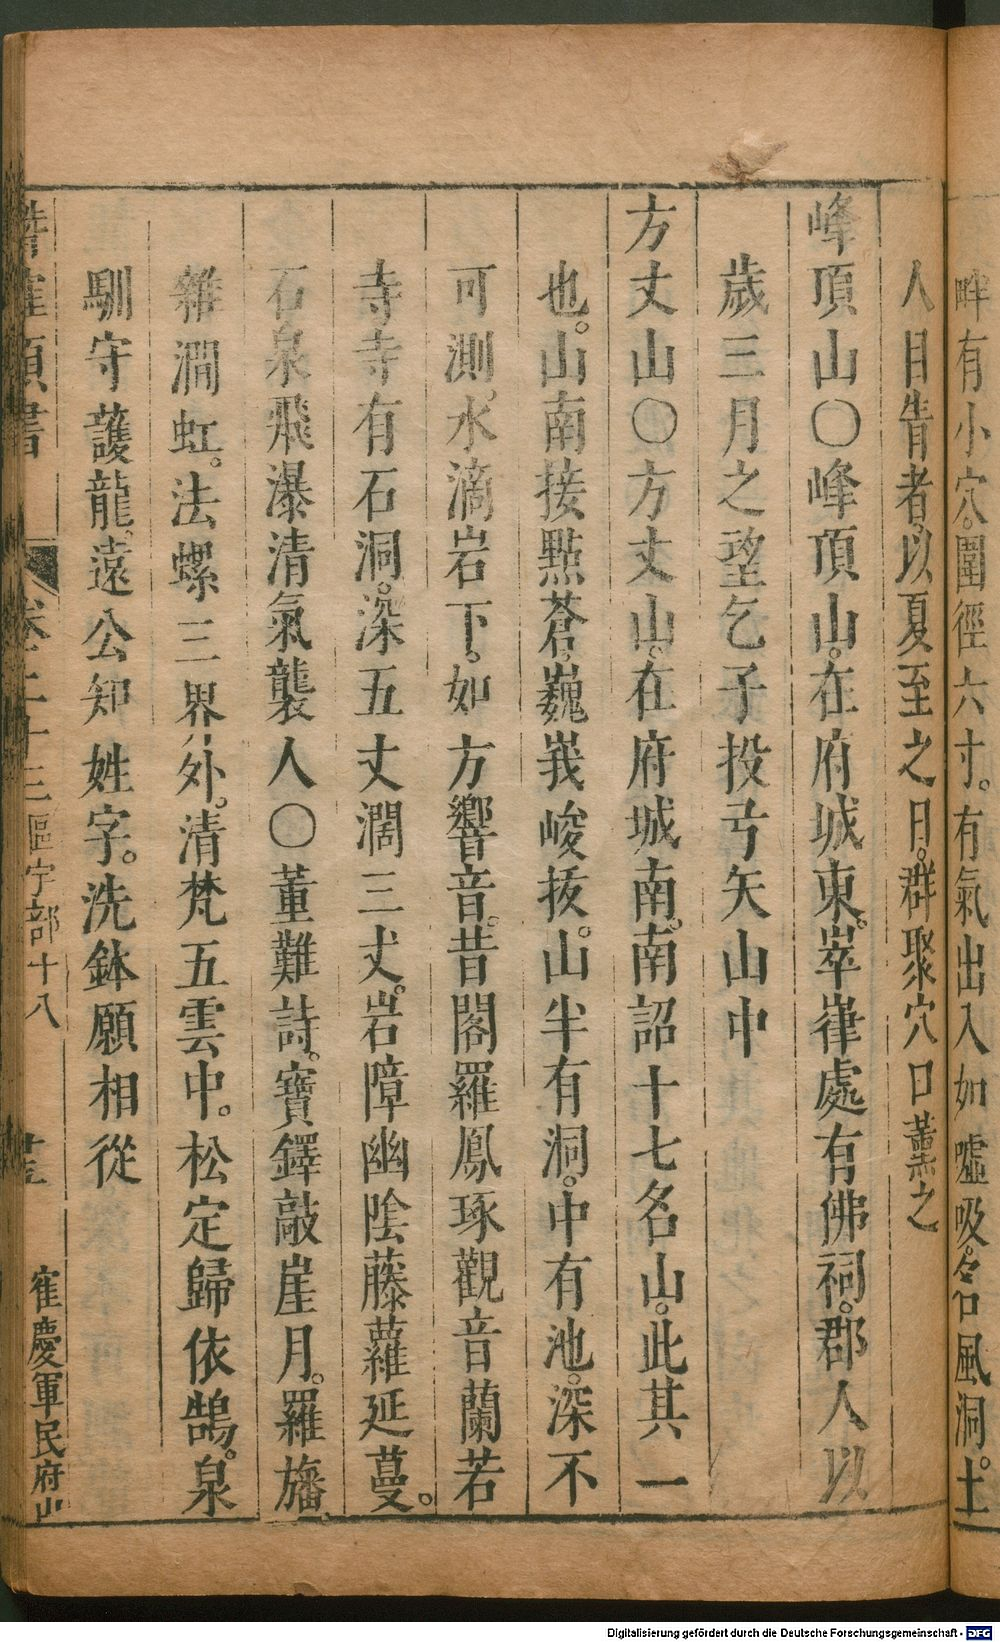 畔有小穴。圍徑六寸。有氣出入如噓吸。名風洞。土
人目眚者。以夏至之日。群聚穴口薰之
峰頂山〇峰頂山。在府城東。崒嵂處有佛祠。郡人以
歲三月之望乞子投弓矢山中
方丈山〇方丈山。在府城南。南詔十七名山。此其一
也。山南接點蒼。巍峩峻拔。山半有洞。中有池。深不
可測。水滴岩下。如方響音。昔閣羅鳳琢觀音蘭若
寺寺有石洞。深五丈濶三丈。岩障幽陰藤蘿延蔓。
石泉飛瀑清氣襲人〇董難詩。寶鐸敲崖月。羅旛
雜澗虹。法螺三界外。清梵五雲中。松定歸依鵠。泉
馴守護龍。遠公知姓字。洗鉢願相從
潛確類書 卷之二十三區宇部十八 崔慶軍民府山
Digitalisierung gefördert durch die Deutsche Forschungsgemeinschaft - DFG